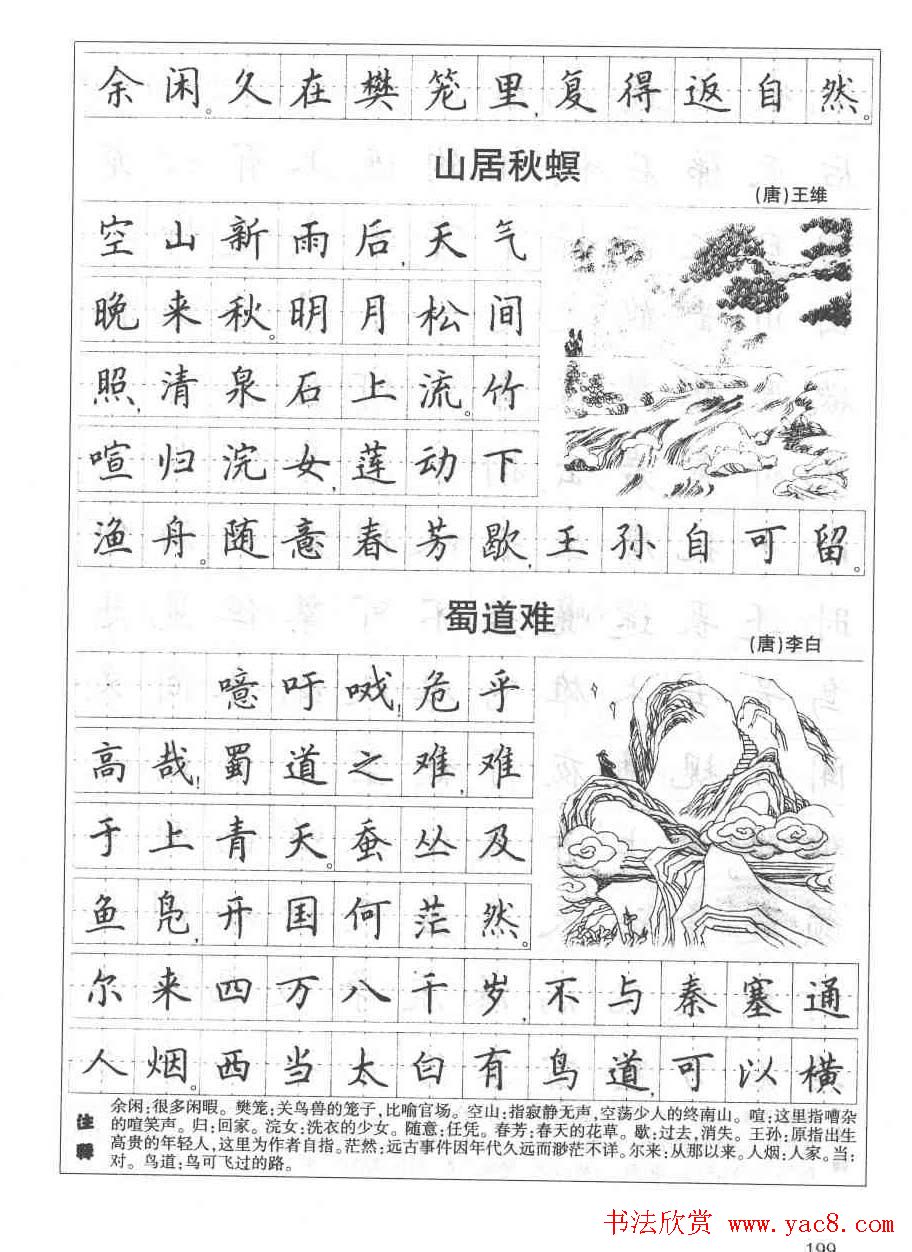 余闲。久在樊笼里，复得返自然。
山居秋螟
(唐)王维
空山新雨后，天气
晚来秋。明月松间
照，清泉石上流。竹
喧归浣女，莲动下
渔舟。随意春芳歇，王孙自可留。
蜀道难
(唐)李白
噫吁哦！危乎
高哉！蜀道之难，难
于上青天。蚕丛及
鱼凫，开国何茫然。
尔来四万八千岁，不与秦塞通
人烟。西当太白有鸟道，可以横
注释
余闲：很多闲暇。樊笼：关鸟兽的笼子，比喻官场。空山：指寂静无声，空荡少人的终南山。喧：这里指嘈杂
的喧笑声。归：回家。浣女：洗衣的少女。随意：任凭。春芳：春天的花草。歇：过去，消失。王孙：原指出生
高贵的年轻人，这里为作者自指。茫然：远古事件因年代久远而渺茫不详。尔来：从那以来。人烟：人家。当：
对。鸟道：鸟可飞过的路。
书法欣赏 www.yac8.com
199